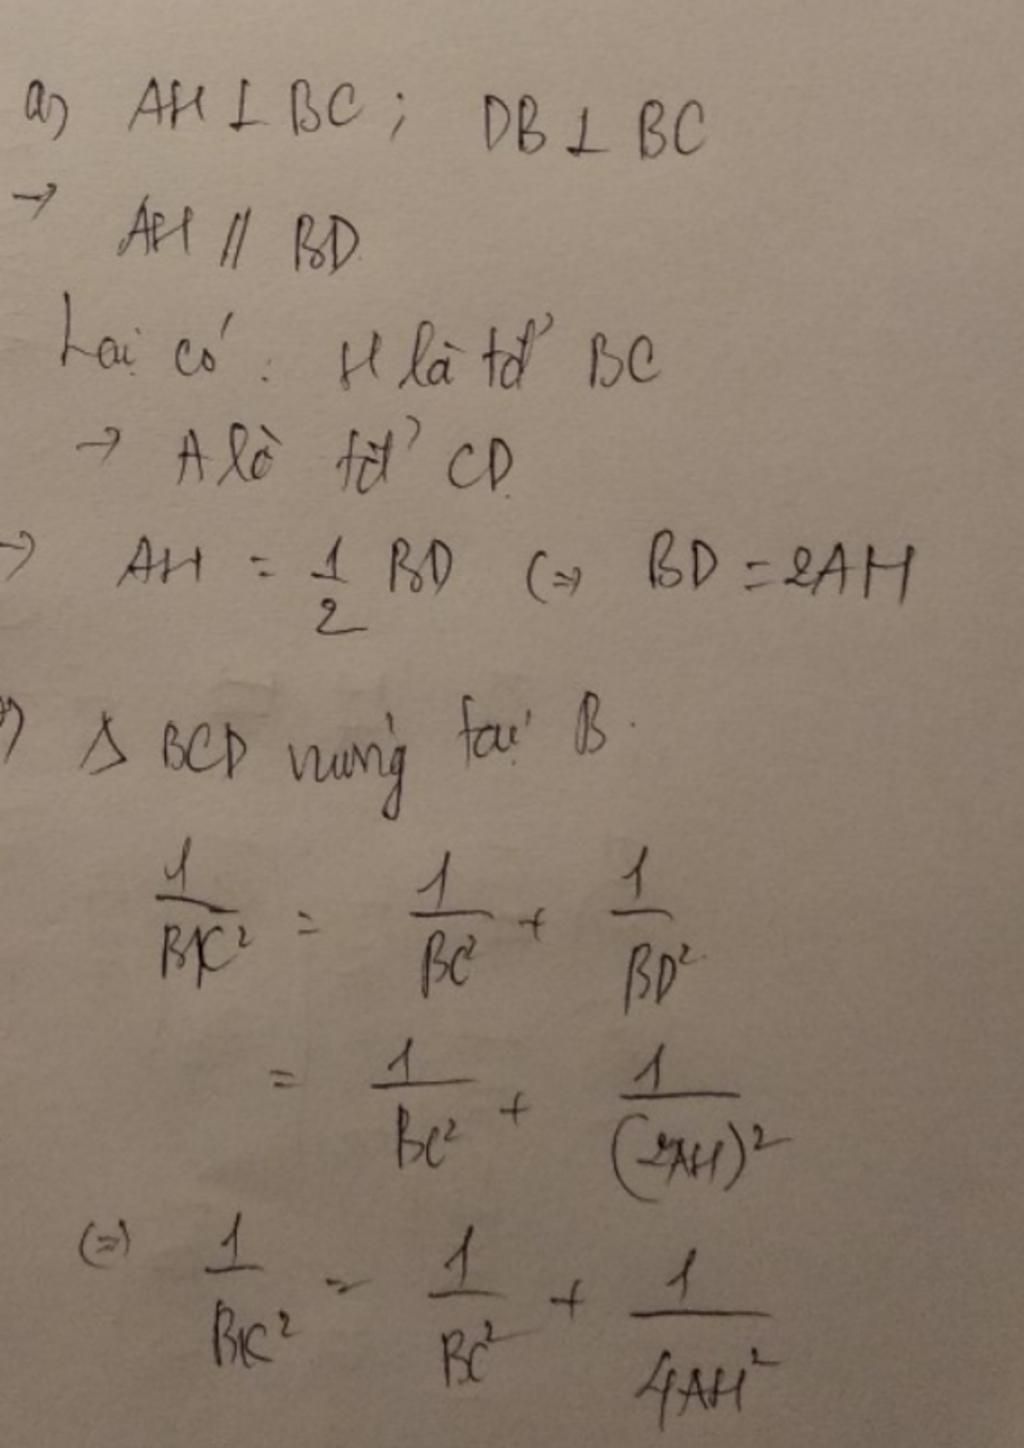 a) AH ⊥ BC ; DB ⊥ BC
→ AH // BD
Lại có : H là tđ BC
→ A là tđ CD
→ AH = 1/2 BD (=) BD = 2AH
) Δ BCD vuông tại B.
1/BK² = 1/BC² + 1/BD²
= 1/BC² + 1/(2AH)²
(=) 1/BK² = 1/BC² + 1/4AH²